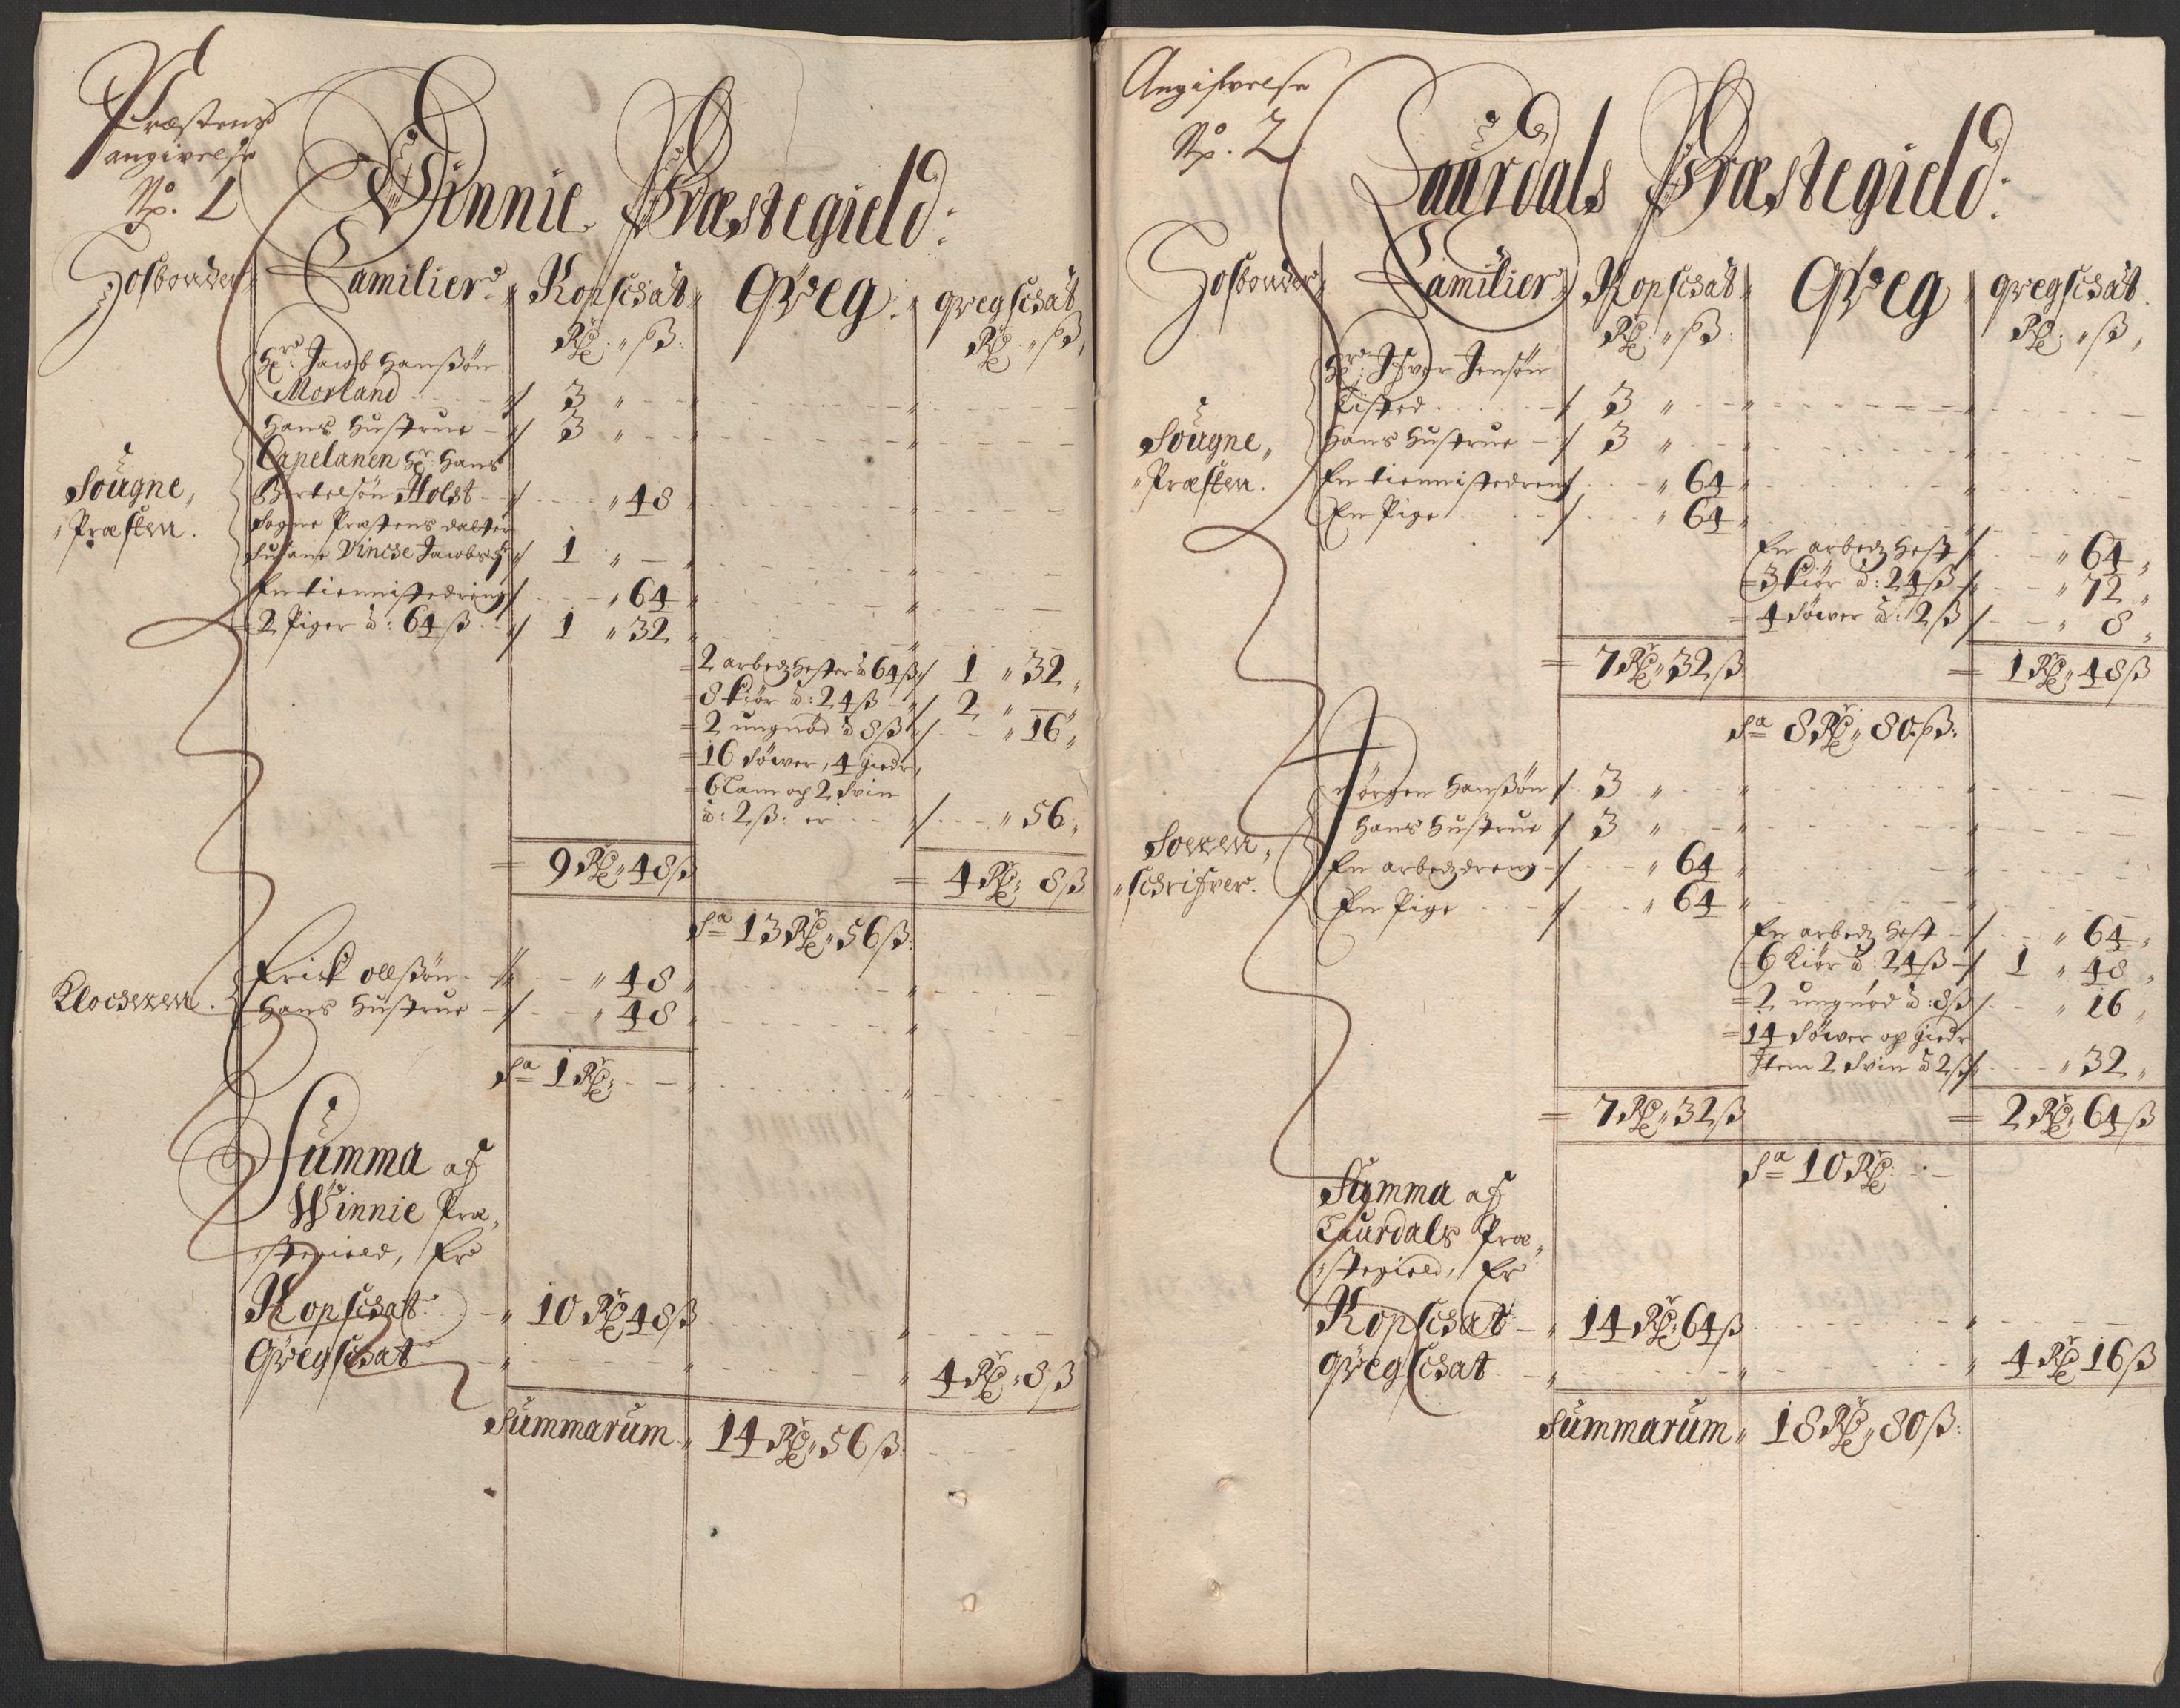 Præstens
angivelse
No. 1
Winnie Præstegield:
Hosbonder
Familier
Kopschat
Qveg
qvegschat
Rdr. ß:
Rdr. ß,
Sougne,
Præsten.
Hr. Jacob Hanßøn
Morland 3
Hans Hustrue 3
Capelanen Hr. Hans
Bertelsøn Holst 48
Sogne Præstens datter
1
En tiennistedreng 64
2 Piger à: 64 ß 1 32
2 arbedz hester à 64 ß 1 32
8 kiør à: 24 ß 2
2 ungnød à 8 ß 16
16 Söwer, 4 gieder,
6 Lam og 2 Svin
à: 2 ß: er 56
9 Rdr 48 ß
4 Rdr 8 ß
Sa 13 Rdr 56 ß:
Klocheren.
Erick ollßøn 48
Hans Hustrue 48
Sa 1 Rdr
Summa af
Winnie Præ,
stegield, Er
Kopschat 10 Rdr 48 ß
Qvegschat 4 Rdr 8 ß
Summarum 14 Rdr 56 ß:
Angifvelse
No. 2
Laurdals Præstegield:
Hosbonder
Familier
Kopschat
Qveg
qvegschat
Rdr. ß:
Rdr. ß,
Sougne,
Præsten.
Hr. Ifver Jensøn
Tisted 3
Hans Hustrue 3
En tiennistedreng 64
En Pige 64
En arbedz Hest 64
3 kiør à: 24 ß 72
4 Söwer à: 2 ß 8
7 Rdr 32 ß
1 Rdr 48 ß
Sa 8 Rdr 80 ß:
Soeren,
schrifver.
Jörgen Hanßøn 3
Hans Hustrue 3
En arbedzdreng 64
En Pige 64
En arbedz Hest 64
6 Kiør à: 24 ß 1 48
2 ungnød à: 8 ß 16
14 Söwer og gieder
Item 2 Svin à 2 ß 32
7 Rdr 32 ß
2 Rdr 64 ß
Sa 10 Rdr
Summa af
Laurdals Præ,
stegield, Er
Kopschat 14 Rdr 64 ß
qvegschat 4 Rdr 16 ß
Summarum 18 Rdr 80 ß: